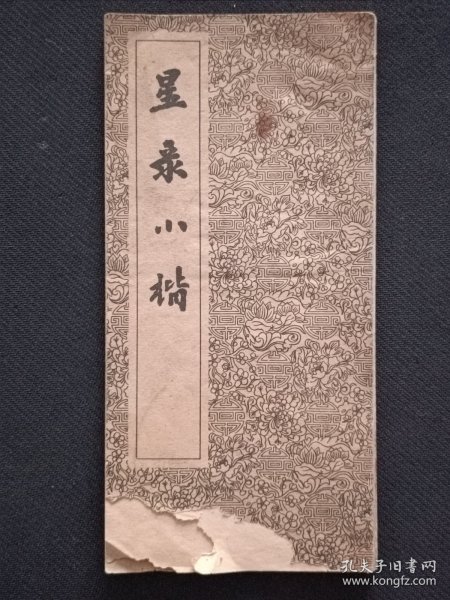 星彔小楷
孔夫子旧书网
www.kongfz.com